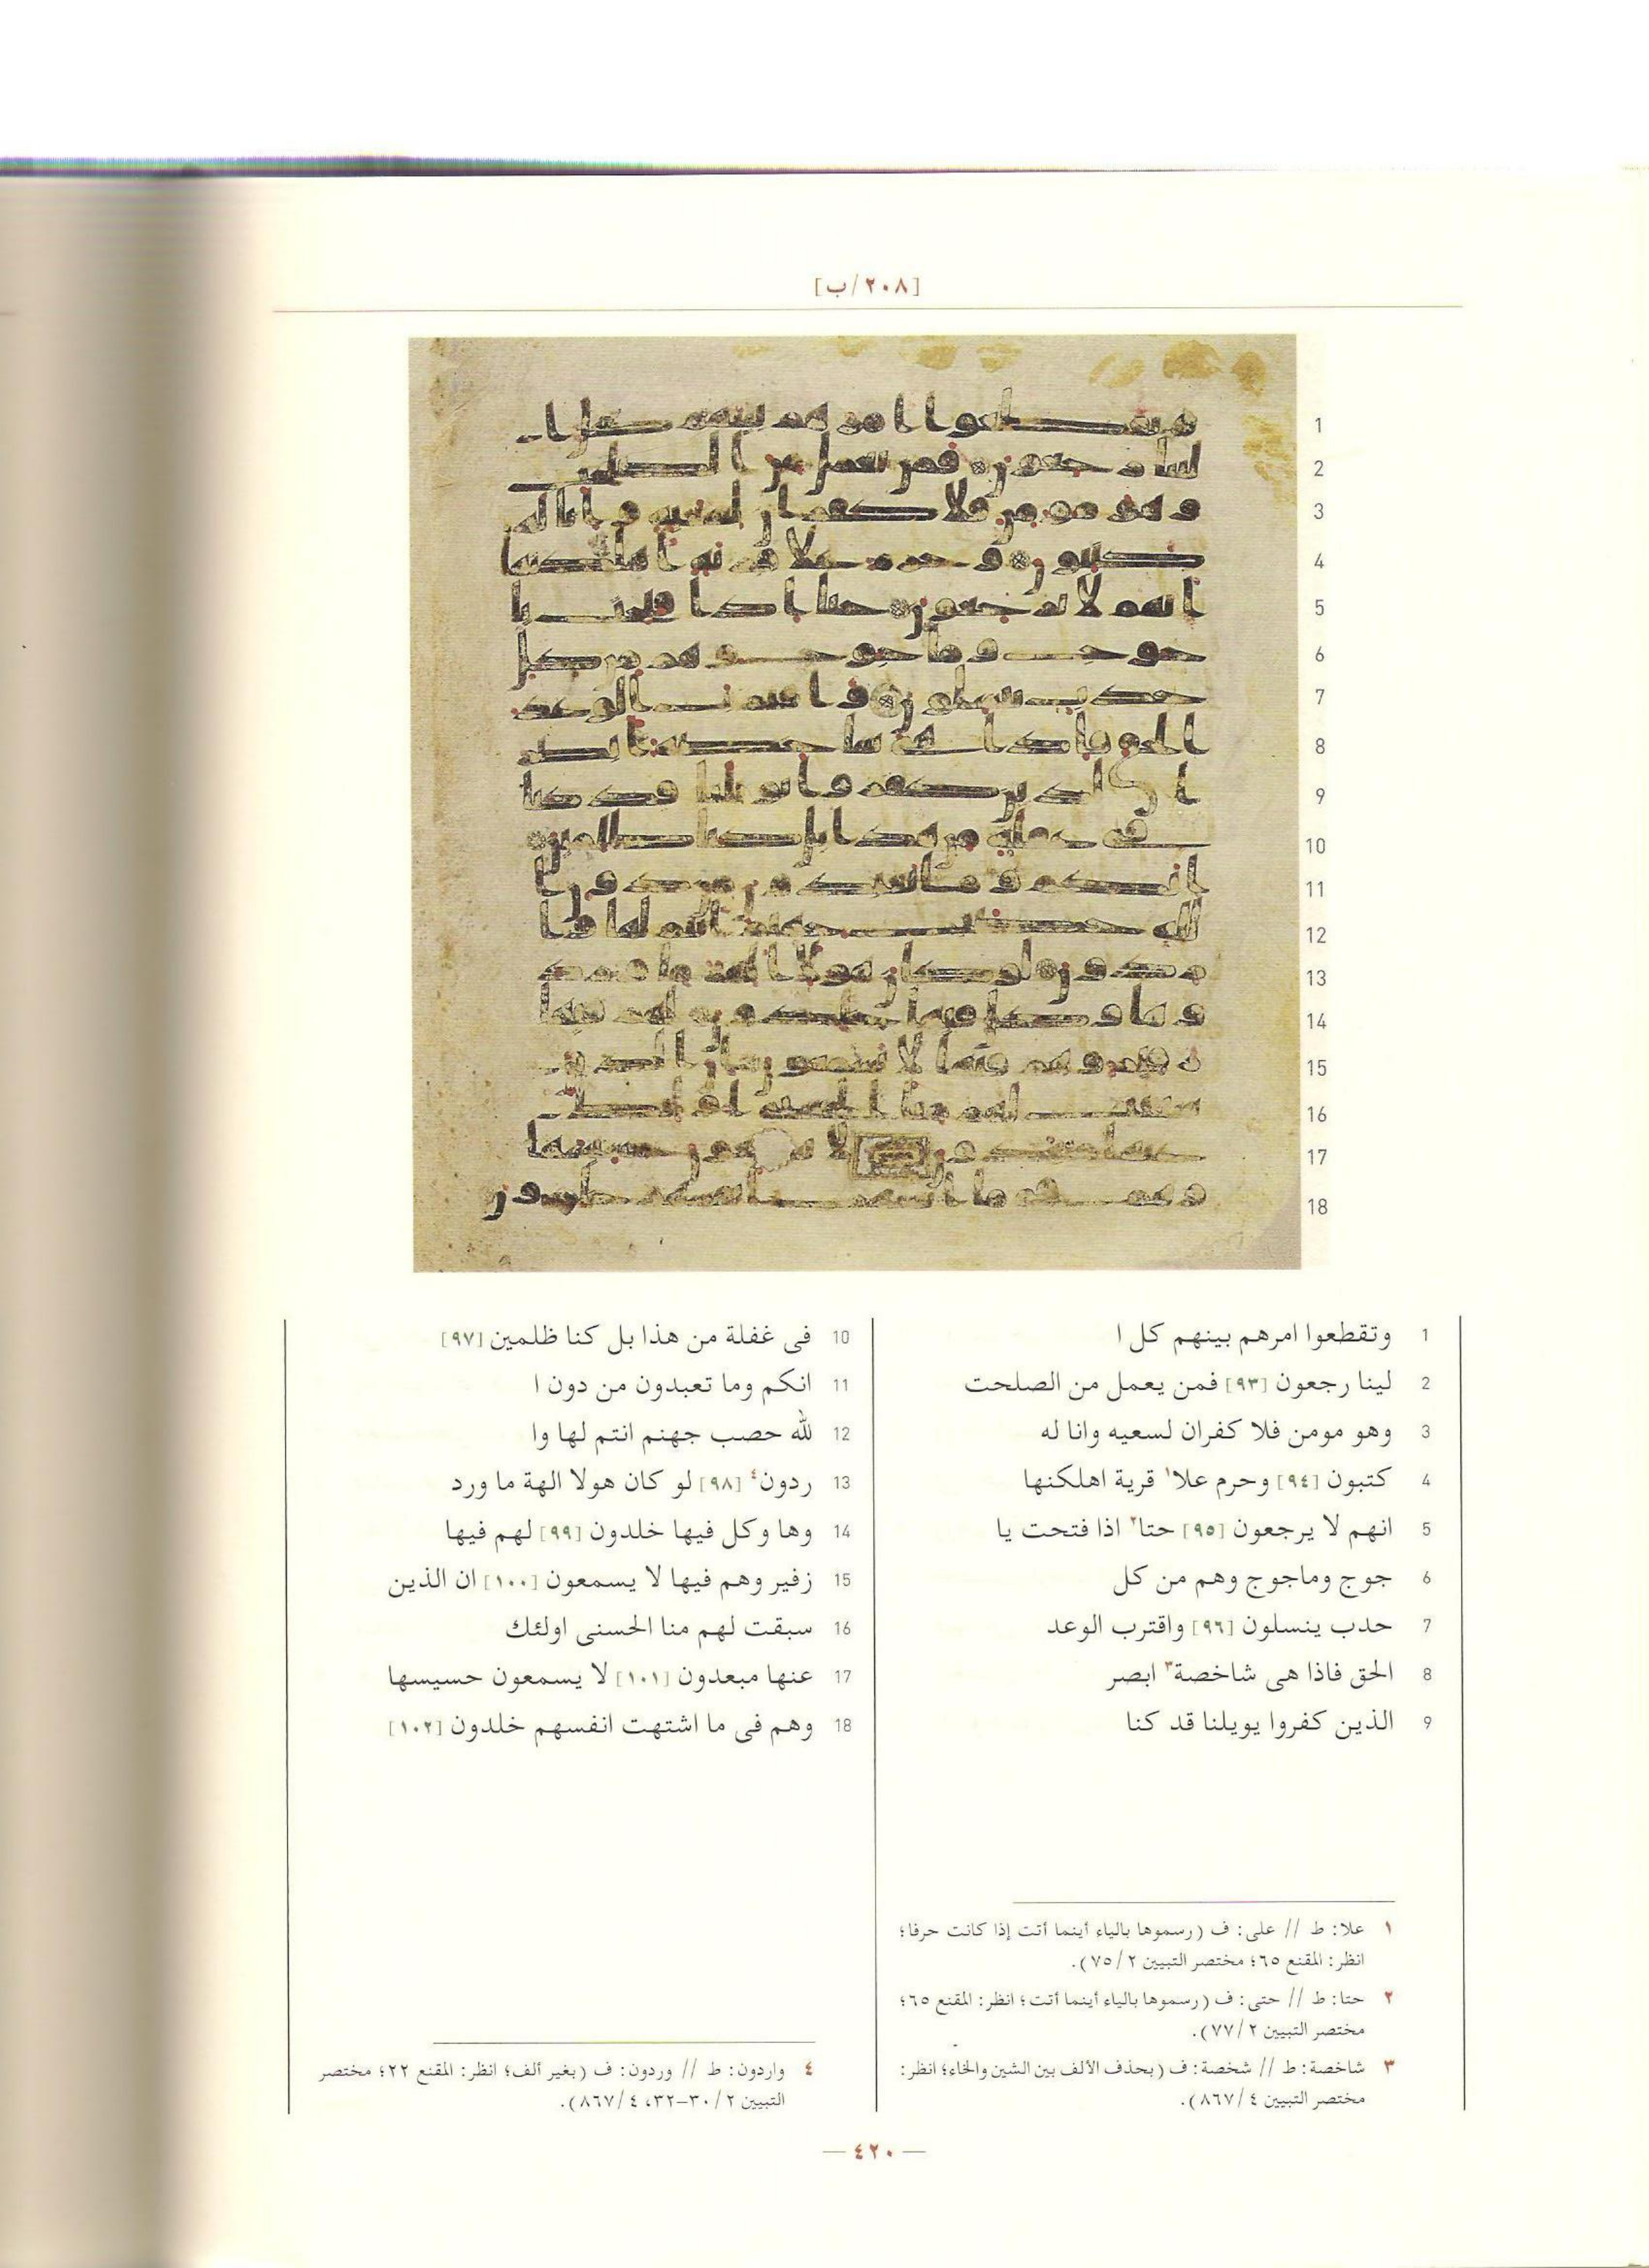 [٢٠٨/ب]
1 وتقطعوا امرهم بينهم كل ا
2 لينا رجعون [٩٣] فمن يعمل من الصلحت
3 وهو مومن فلا كفران لسعيه وانا له
4 كتبون [٩٤] وحرم علا١ قرية اهلكنها
5 انهم لا يرجعون [٩٥] حتا٢ اذا فتحت يا
6 جوج وماجوج وهم من كل
7 حدب ينسلون [٩٦] واقترب الوعد
8 الحق فاذا هى شاخصة٣ ابصر
9 الذين كفروا يويلنا قد كنا
10 فى غفلة من هذا بل كنا ظلمين [٩٧]
11 انكم وما تعبدون من دون ا
12 لله حصب جهنم انتم لها وا
13 ردون٤ [٩٨] لو كان هولا الهة ما ورد
14 وها وكل فيها خلدون [٩٩] لهم فيها
15 زفير وهم فيها لا يسمعون [١٠٠] ان الذين
16 سبقت لهم منا الحسنى اولئك
17 عنها مبعدون [١٠١] لا يسمعون حسيسها
18 وهم فى ما اشتهت انفسهم خلدون [١٠٢]
١ علا: ط // على: ف (رسموها بالياء أينما أتت إذا كانت حرفا؛
انظر: المقنع ٦٥؛ مختصر التبيين ٢/ ٧٥).
٢ حتا: ط // حتى: ف (رسموها بالياء أينما أتت؛ انظر: المقنع ٦٥؛
مختصر التبيين ٢/ ٧٧).
٣ شاخصة: ط // شخصة: ف (بحذف الألف بين الشين والخاء؛ انظر:
مختصر التبيين ٤/ ٨٦٧).
٤ واردون: ط // وردون: ف (بغير ألف؛ انظر: المقنع ٢٢؛ مختصر
التبيين ٢/ ٣٠-٣٢، ٤/ ٨٦٧).
— ٤٢٠ —